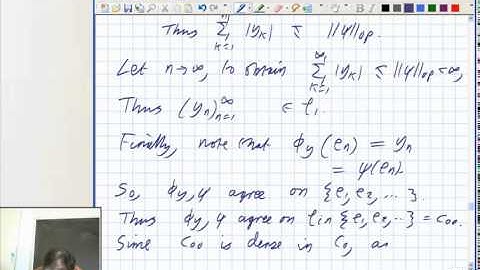 Thus ∑_{k=1}^{n} |y_k| ≤ ||ψ||_op.
Let n→∞, to obtain ∑_{k=1}^{∞} |y_k| ≤ ||ψ||_op < ∞,
Thus (y_n)_{n=1}^{∞} ∈ ℓ_1.
Finally, note that ϕ_y(e_n) = y_n
= ψ(e_n).
So, ϕ_y, ψ agree on {e_1, e_2, ...}.
Thus ϕ_y, ψ agree on lin {e_1, e_2, ...} = c_00.
Since c_00 is dense in c_0, as